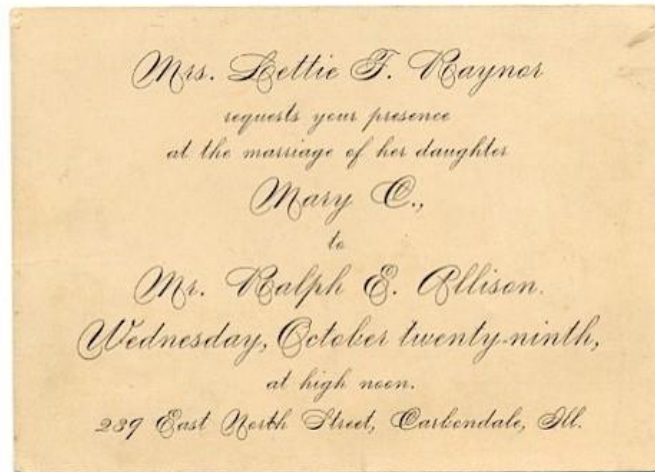 Mrs. Lettie F. Raynor
requests your presence
at the marriage of her daughter
Mary C.,
to
Mr. Ralph E. Allison.
Wednesday, October twenty-ninth,
at high noon.
239 East North Street, Carbondale, Ill.